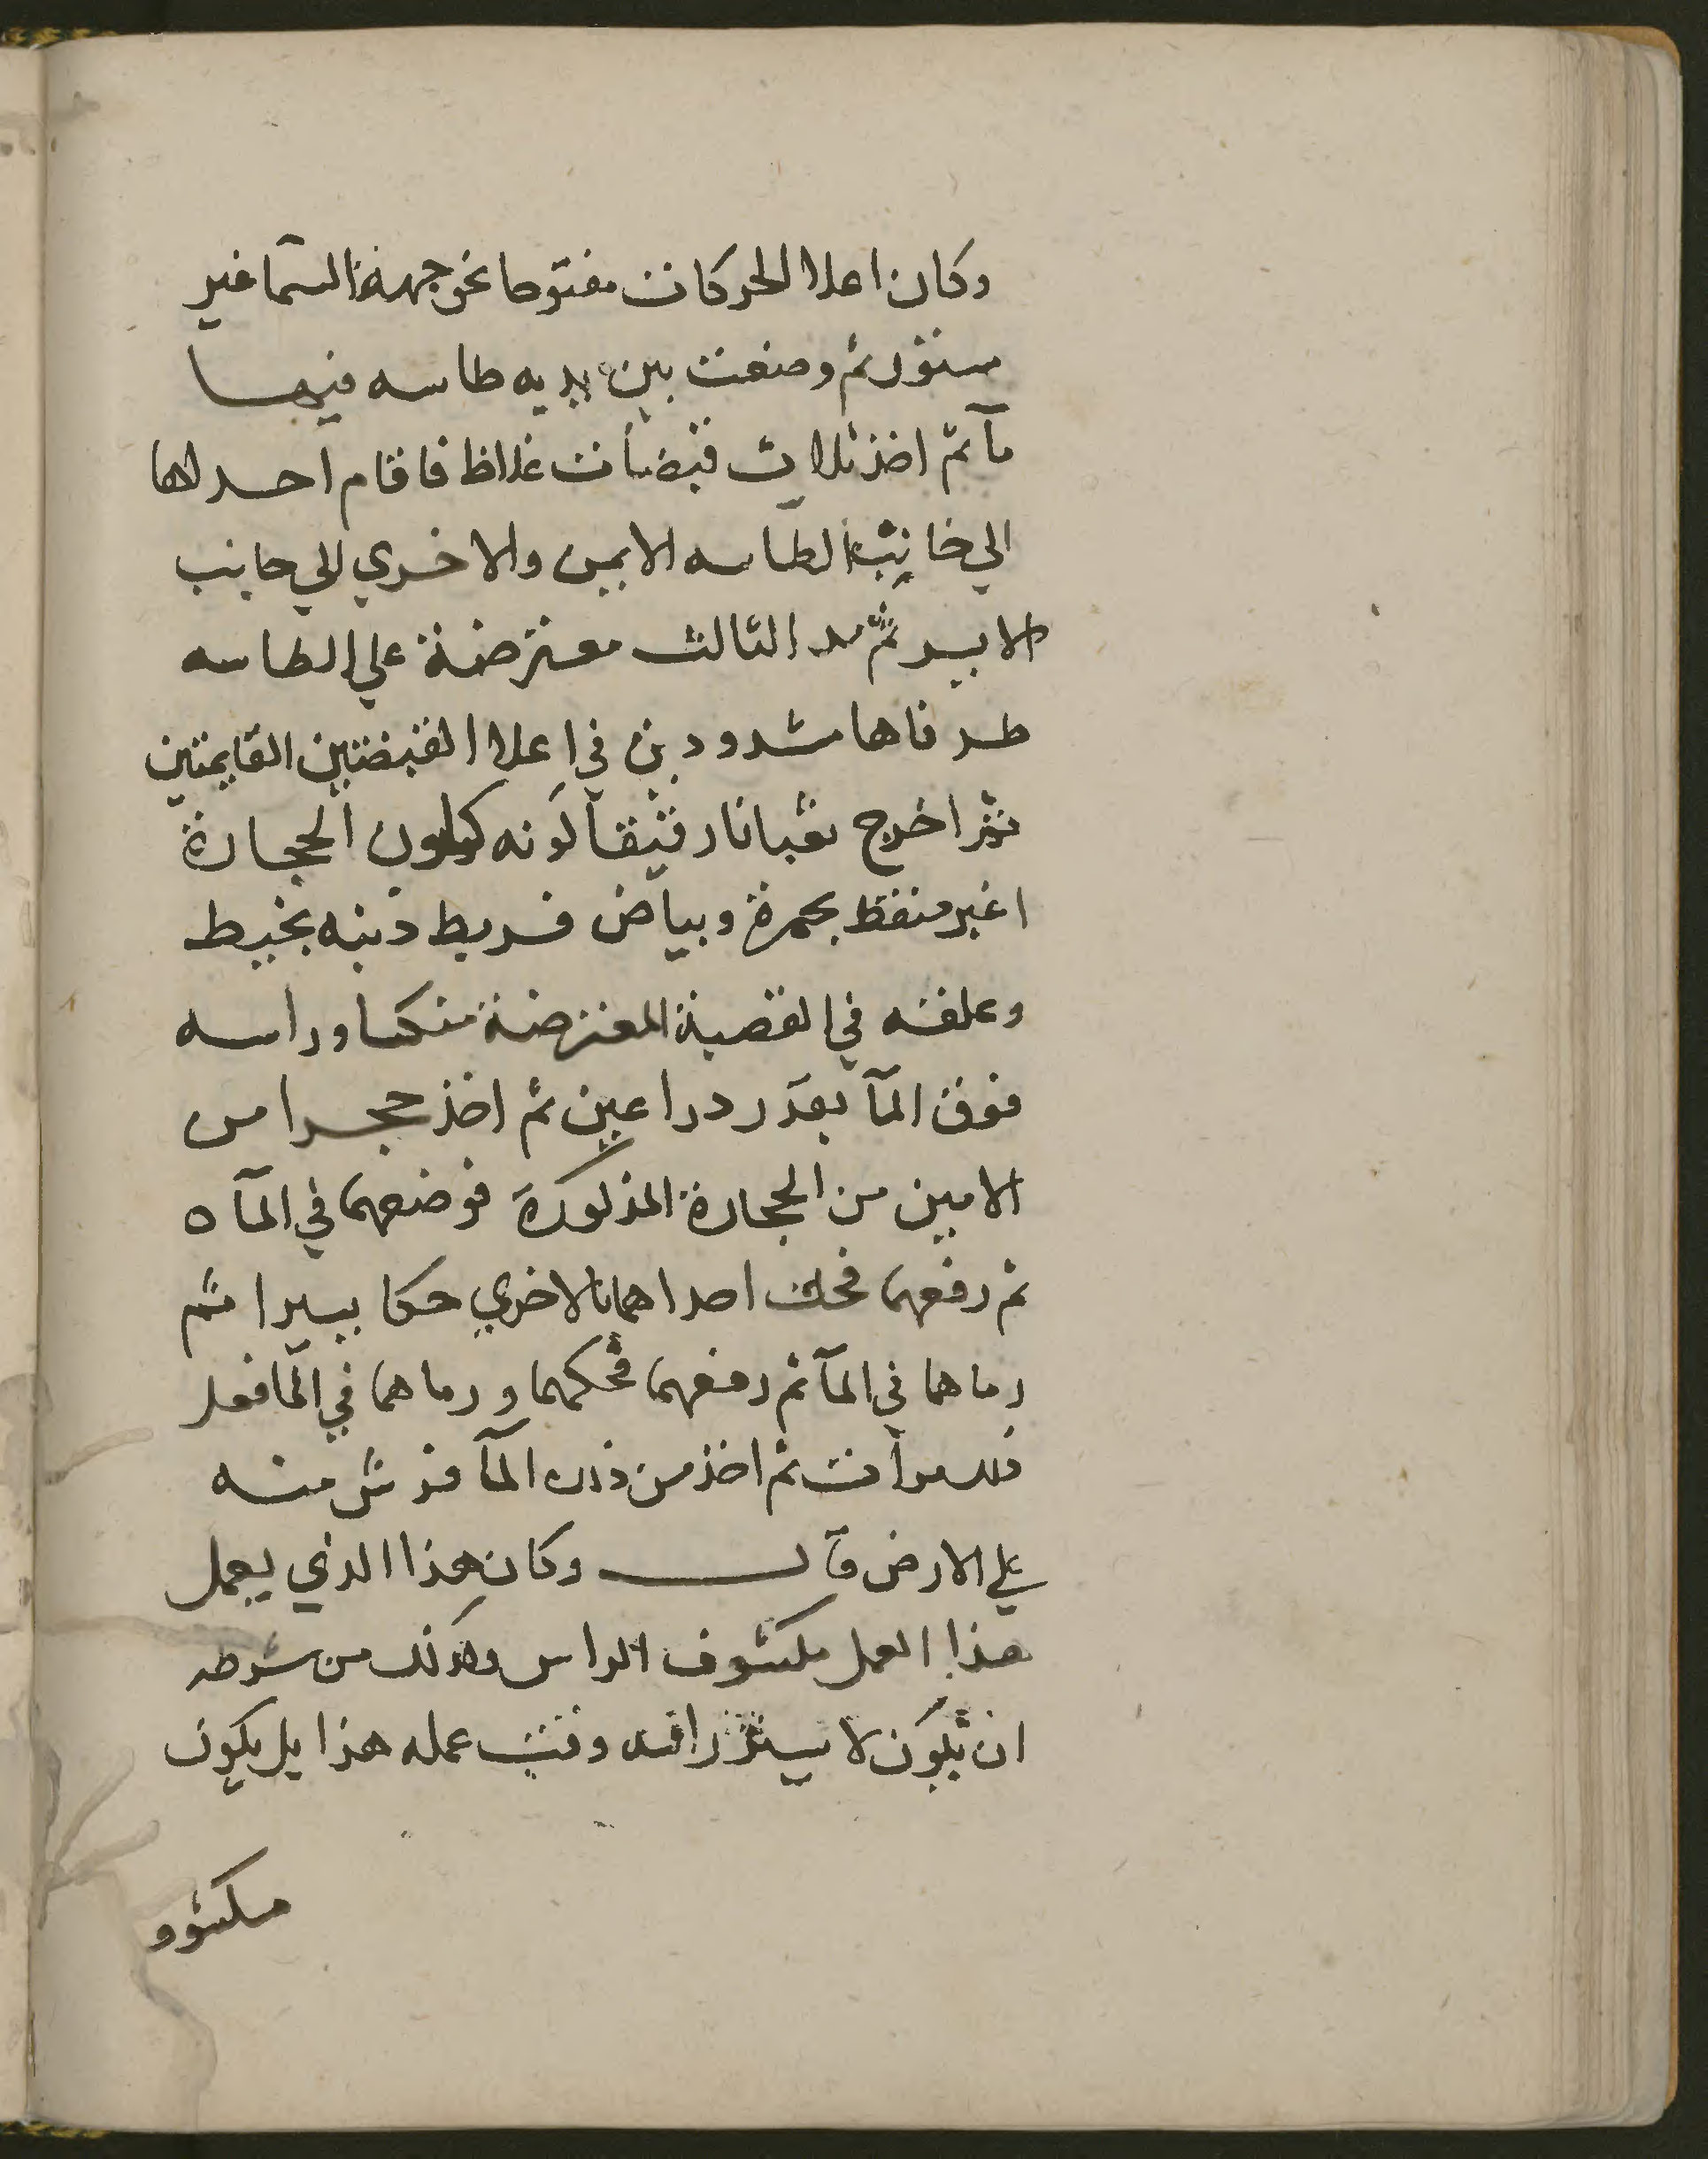 وكان اعلا الحركات مفتوحا نحو جهة السما غير
مستور ثم وضعت بين يديه طاسه فيها
مآ ثم اخذ ثلاث قبضات غلاظ فاقام احداها
الي جانب الطاسه الايمن والاخري الي جانب
الايسر ثم مد الثالث معترضة علي الطاسه
طرفاها مشدودين في اعلا القبضتين القايمتين
ثم اخرج ثعبانا رقيقا لونه كلون الحجارة
اغبر منقط بحمرة وبياض فربط ذنبه بخيط
وعلقه في القصبة المعترضة منكسا وراسه
فوق المآ بقدر دراعين ثم اخذ حجرا من
الامين من الحجارة المذكورة فوضعهما في المآ ه
ثم رفعهما فحك احداهما بالاخري حكا يسيرا ثم
رماهما في المآ ثم رفعهما فحكهما ورماهما في المآ فعل
ذلك مرات ثم اخذ من ذلك المآ فرش منه
علي الارض قال وكان هذا الذي يعمل
هذا العمل مكشوف الراس وكذلك من شرطه
ان يكون لا يستر راسه وقت عمله هذا بل يكون
مكشوو